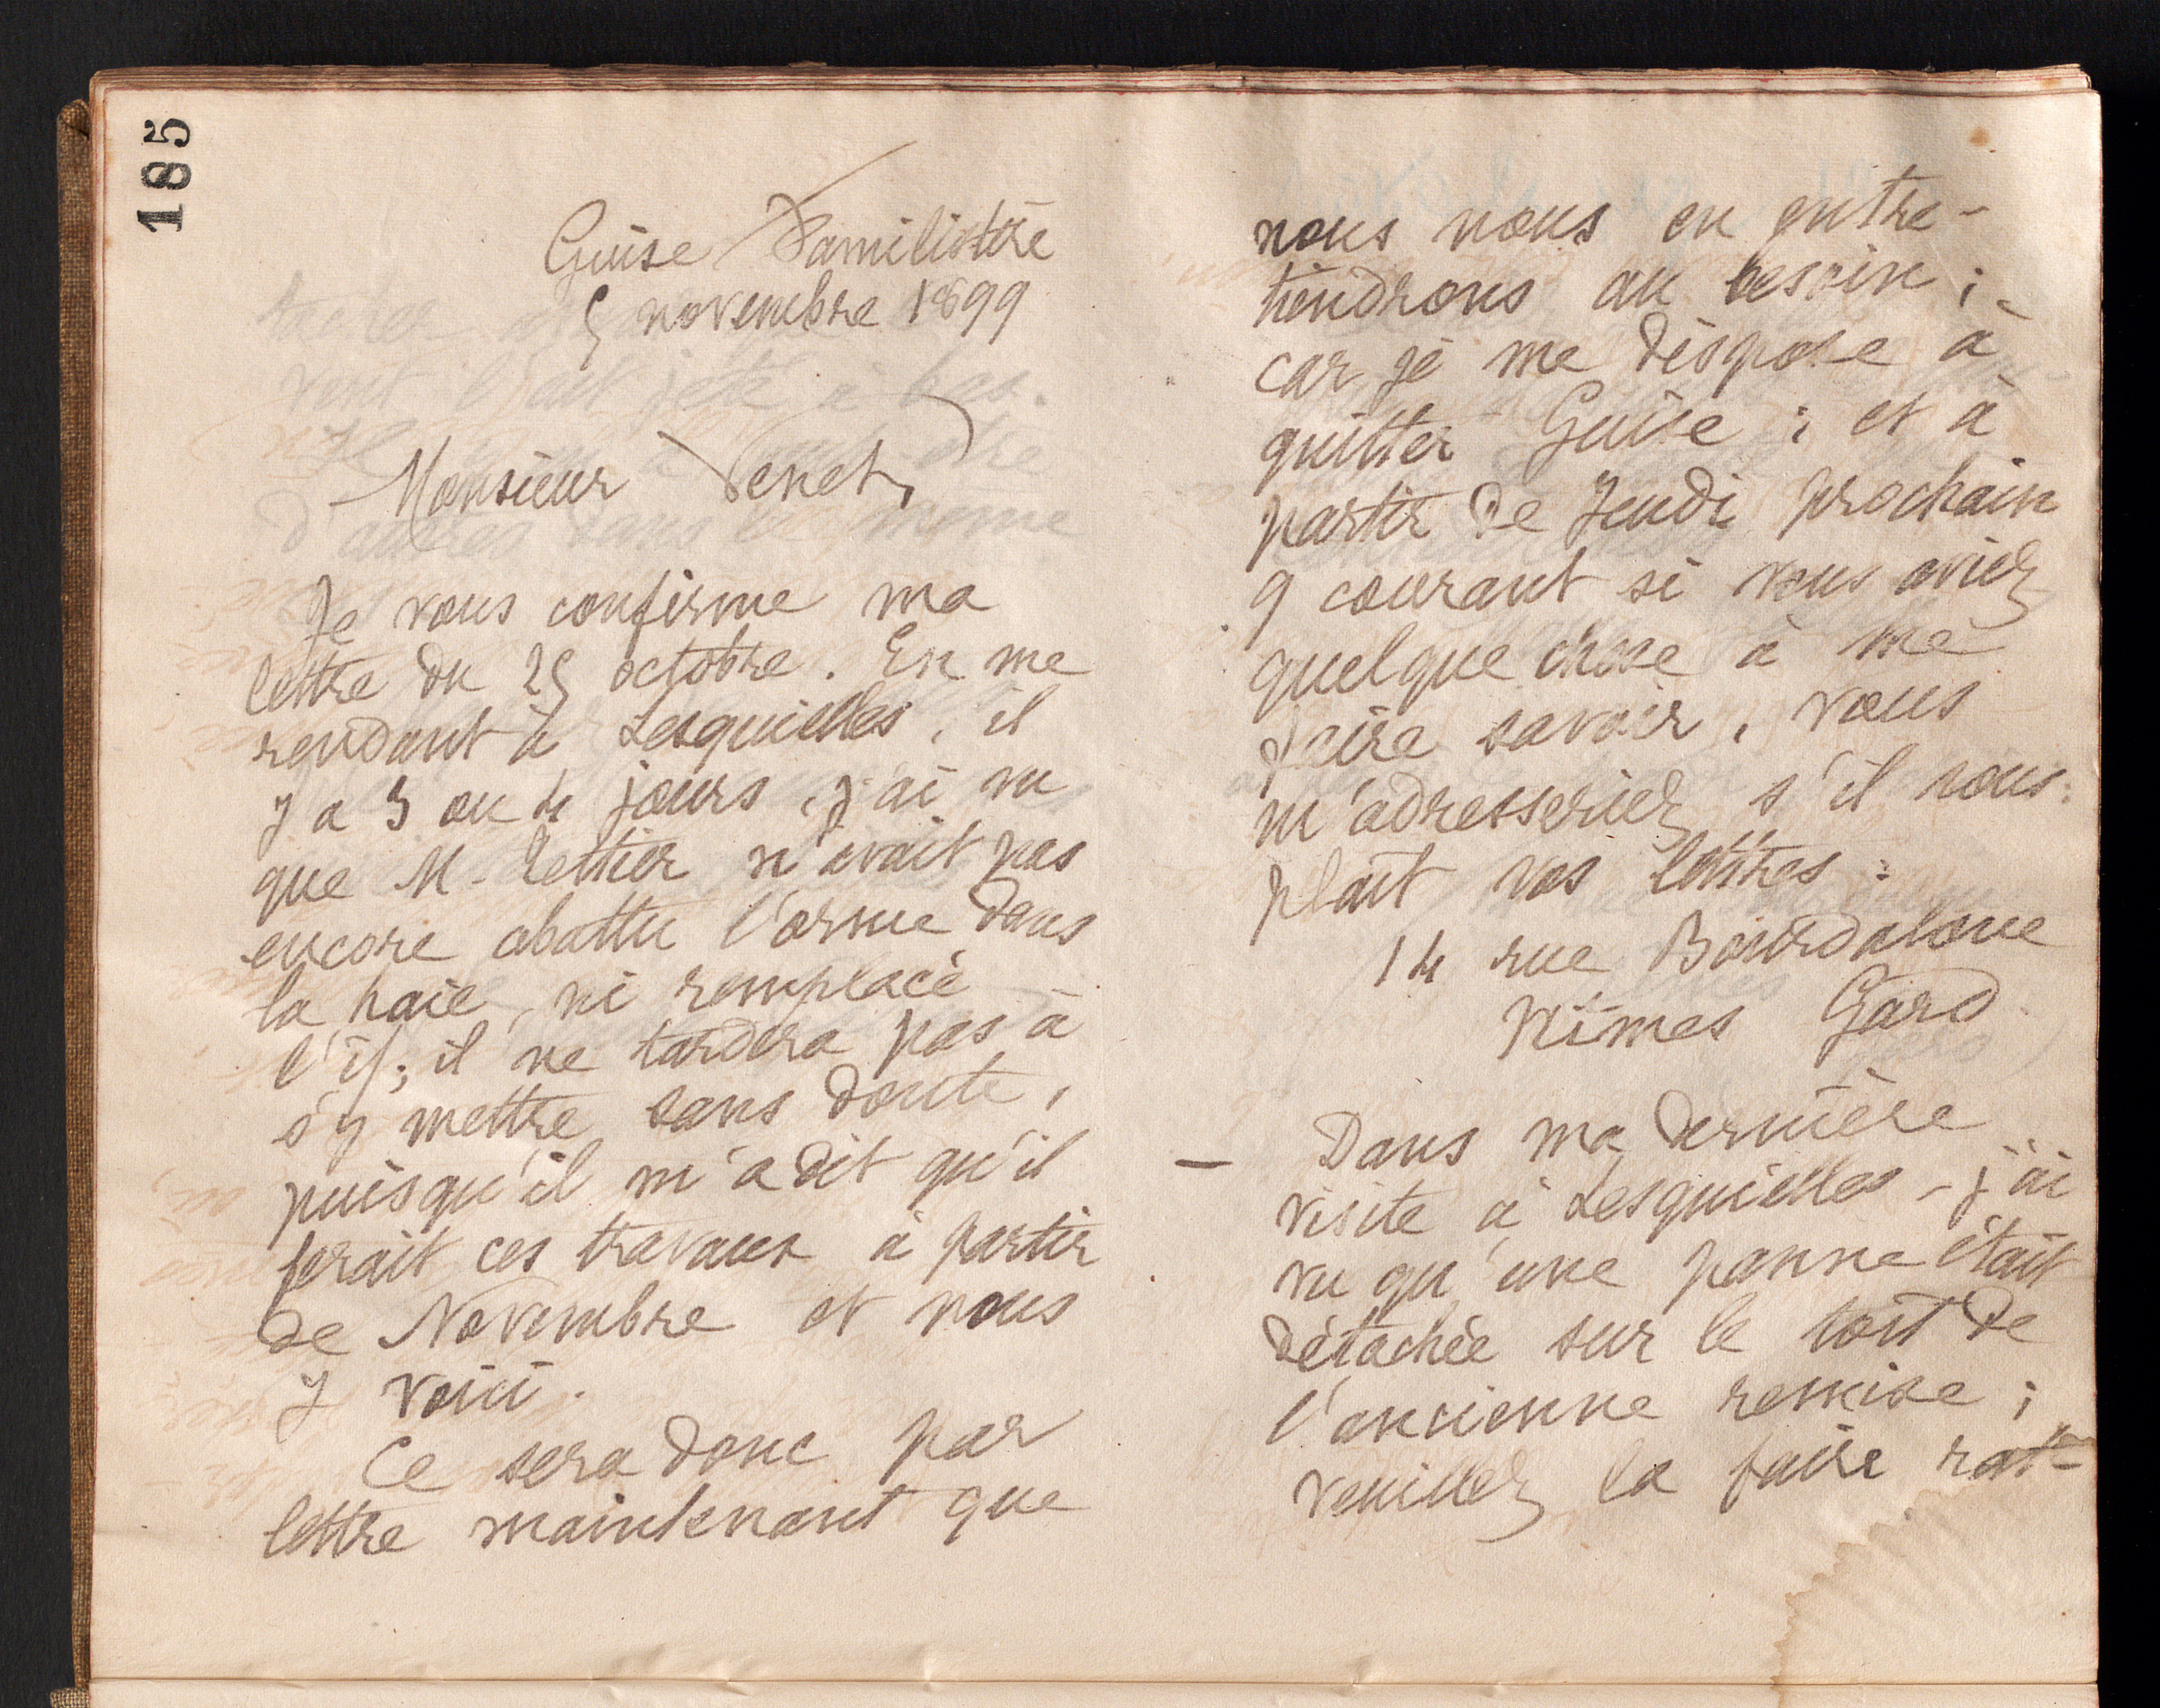 185
Guise Familistère
5 novembre 1899
Monsieur Venet,
Je vous confirme ma
lettre du 25 octobre. En me
rendant à Lesquielles, il
y a 3 ou 4 jours, j'ai vu
que M. n'avait pas
encore abattu l'orme dans
la haie, ni remplacé
l'if; il ne tardera pas à
s'y mettre sans doute,
puisqu'il m'a dit qu'il
ferait ces travaux à partir
de Novembre et nous
y voici.
Ce sera donc par
lettre maintenant que
nous nous en entre-
tiendrons au besoin;
car je me dispose à
quitter Guise; et à
partir de Jeudi prochain
9 courant si vous aviez
quelque chose à me
faire savoir, vous
m'adresseriez s'il vous
plaît vos lettres:
14 rue Bourdaloue
Nîmes Gard
— Dans ma dernière
visite à Lesquielles - j'ai
vu qu'une panne était
détachée sur le toit de
l'ancienne remise;
veuillez la faire rat-